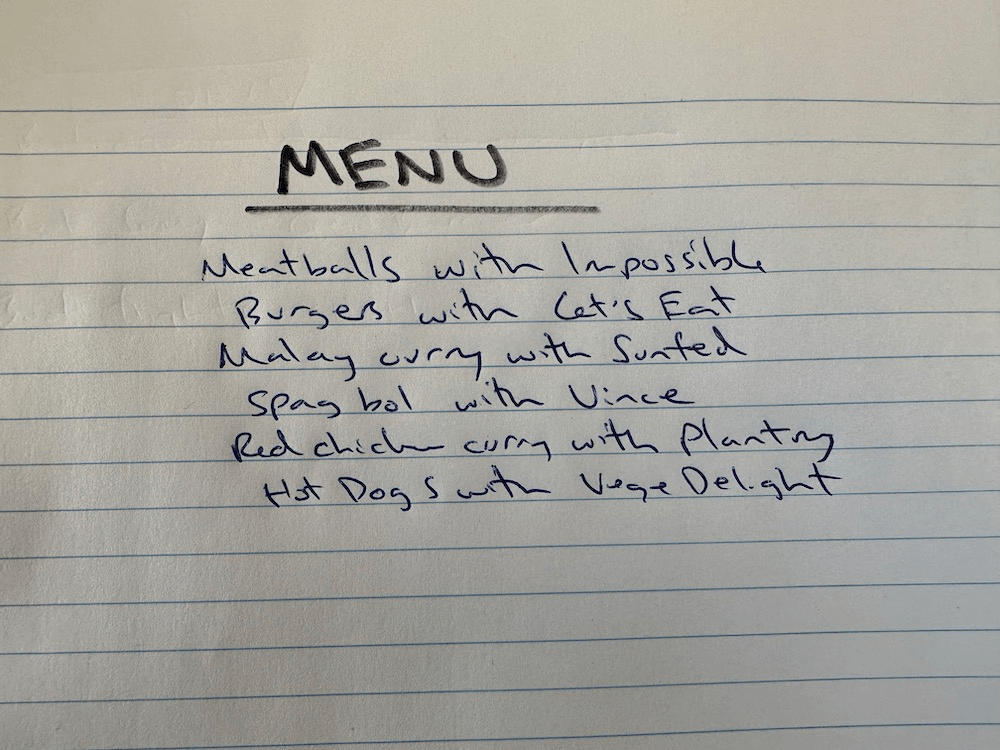 MENU
Meatballs with Impossible
Burgers with Let's Eat
Malay curry with Sunfed
Spag bol with Vince
Red chicken curry with Plantry
Hot Dogs with Vege Delight